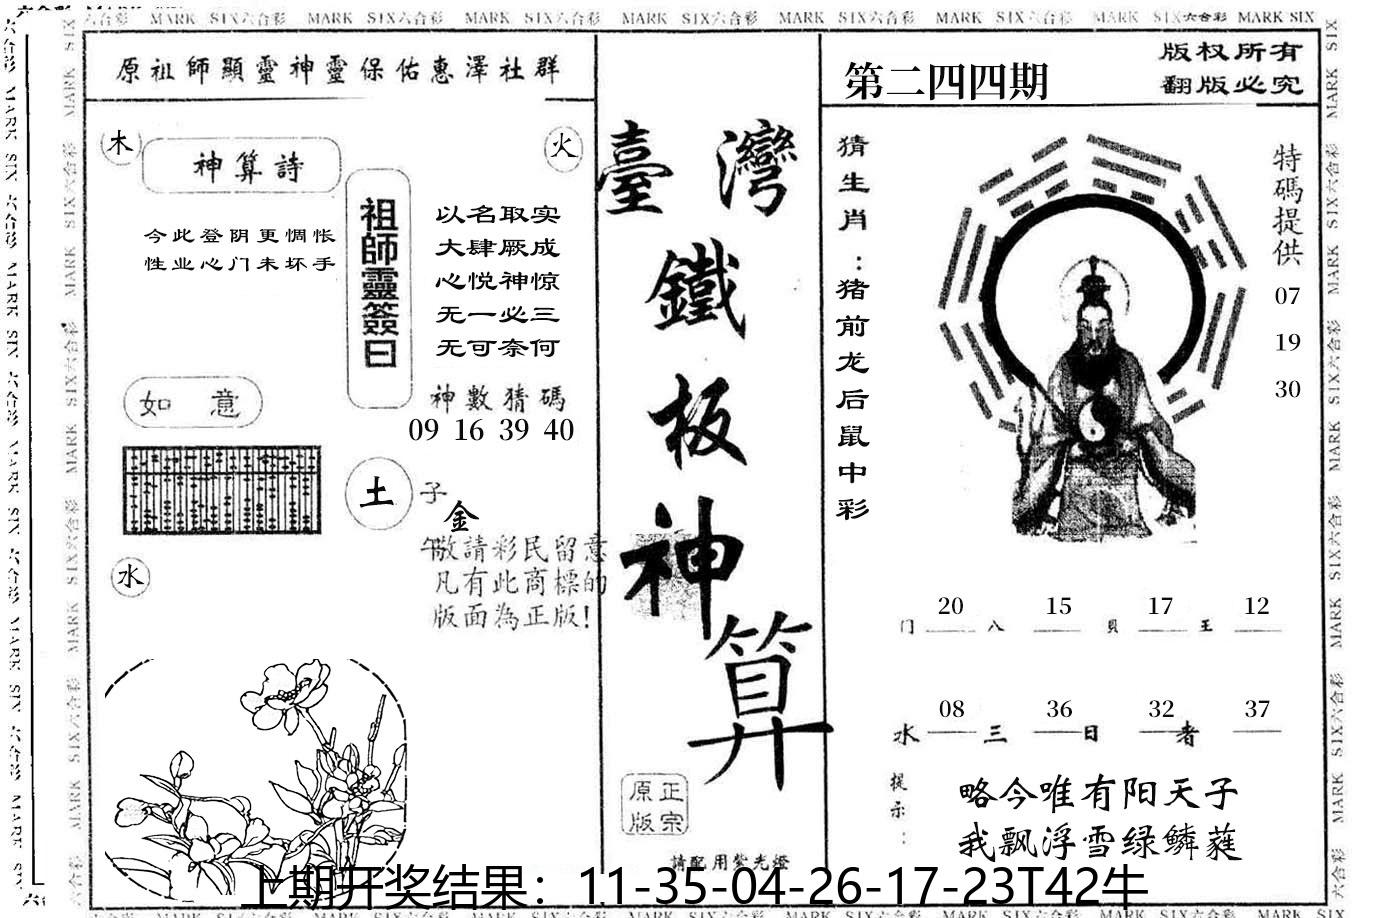 MARK SIX六合彩 MARK SIX六合彩 MARK SIX六合彩 MARK SIX六合彩 MARK SIX六合彩 MARK SIX六合彩 MARK SIX六合彩 MARK SIX
原祖師顯靈神靈保佑惠澤社群
木
火
神算詩
今此登阴更惆怅
性业心门未坏手
祖師靈簽曰
以名取实
大肆厥成
心悦神惊
无一必三
无可奈何
神數猜碼
09 16 39 40
如意
土
子
金
午
水
敬請彩民留意
凡有此商標的
版面為正版!
臺灣
鐵
板
神
算
正宗
原版
請配用紫光燈
第二四四期
版权所有
翻版必究
猜生肖：猪前龙后鼠中彩
特碼提供
07
19
30
20 15 17 12
门 八 貝 王
08 36 32 37
水 三 日 者
提示：
略今唯有阳天子
我飘浮雪绿鳞蕹
上期开奖结果：11-35-04-26-17-23T42牛